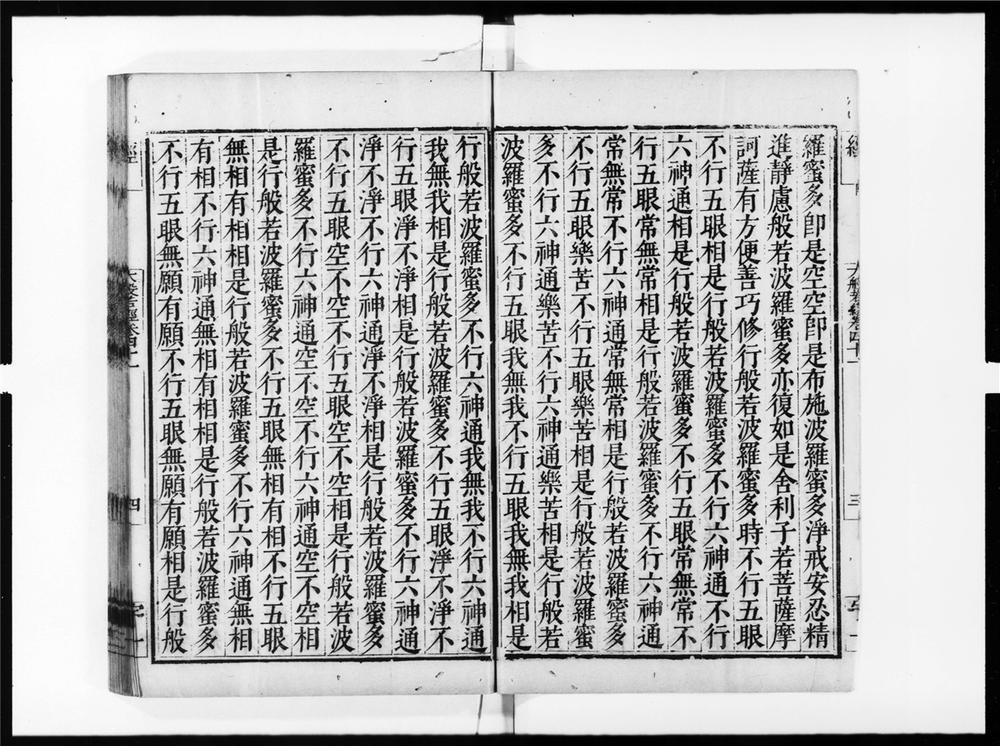 羅蜜多卽是空空卽是布施波羅蜜多淨戒安忍精
進靜慮般若波羅蜜多亦復如是舍利子若菩薩摩
訶薩有方便善巧修行般若波羅蜜多時不行五眼
不行五眼相是行般若波羅蜜多不行六神通不行
六神通相是行般若波羅蜜多不行五眼常無常不
行五眼常無常相是行般若波羅蜜多不行六神通
常無常不行六神通常無常相是行般若波羅蜜多
不行五眼樂苦不行五眼樂苦相是行般若波羅蜜
多不行六神通樂苦不行六神通樂苦相是行般若
波羅蜜多不行五眼我無我不行五眼我無我相是
行般若波羅蜜多不行六神通我無我不行六神通
我無我相是行般若波羅蜜多不行五眼淨不淨不
行五眼淨不淨相是行般若波羅蜜多不行六神通
淨不淨不行六神通淨不淨相是行般若波羅蜜多
不行五眼空不空不行五眼空不空相是行般若波
羅蜜多不行六神通空不空不行六神通空不空相
是行般若波羅蜜多不行五眼無相有相不行五眼
無相有相相是行般若波羅蜜多不行六神通無相
有相不行六神通無相有相相是行般若波羅蜜多
不行五眼無願有願不行五眼無願有願相是行般
經
四